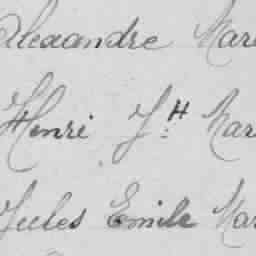 Alexandre Mar
Henri Jh Mar
Jules Emile Mar